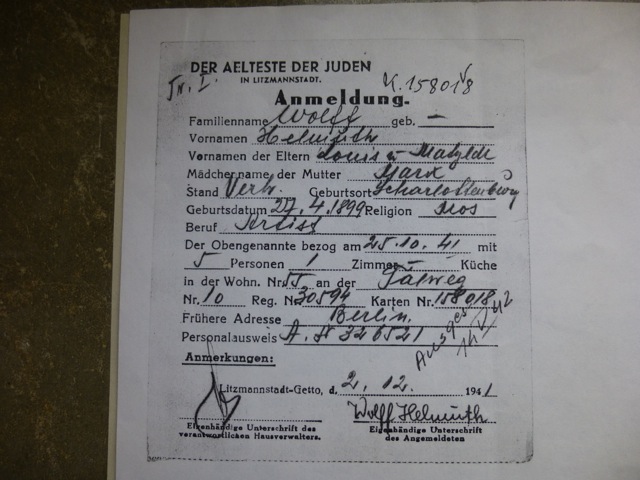 DER AELTESTE DER JUDEN
IN LITZMANNSTADT.
Tr. I. K. 158018
Anmeldung.
Familienname Wolff geb. —
Vornamen Helmuth
Vornamen der Eltern Louis u Matylde
Mädchenname der Mutter Marx
Stand Verh. Geburtsort Charlottenburg
Geburtsdatum 27.4.1899 Religion Mos
Beruf Artist
Der Obengenannte bezog am 25.10.41 mit
5 Personen 1 Zimmer — Küche
in der Wohn. Nr. an der
Nr. 10 Reg. Nr. 30594 Karten Nr. 158018
Frühere Adresse Berlin.
Personalausweis A. № 326521
Ausges.
Anmerkungen:
Litzmannstadt-Getto, d. 2. 12. 1941
Wolff Helmuth
Eigenhändige Unterschrift des verantwortlichen Hausverwalters.
Eigenhändige Unterschrift des Angemeldeten